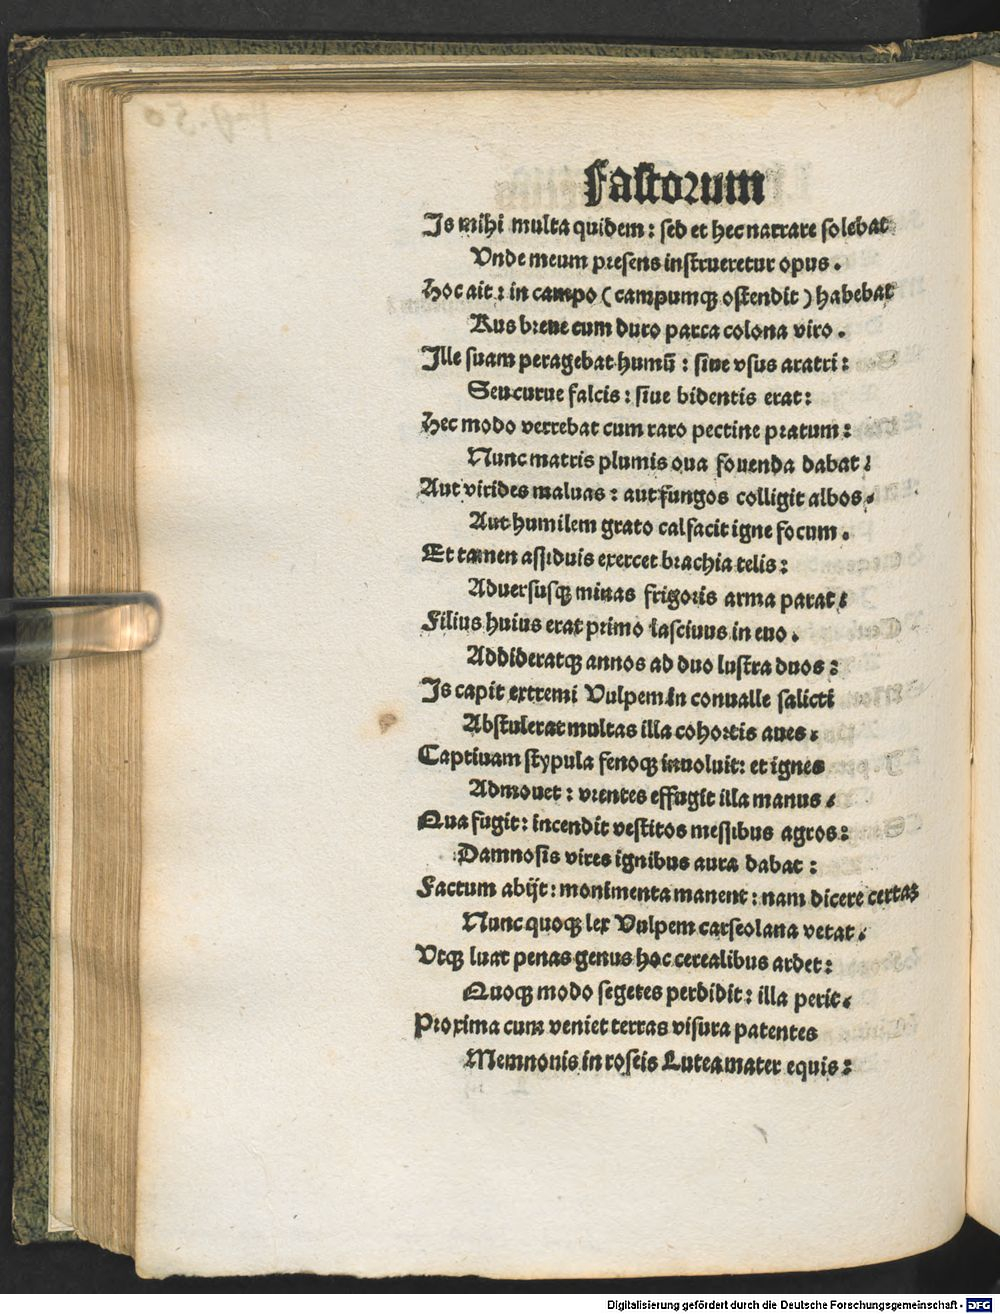 Fastorum
Is mihi multa quidem: sed et hec narrare solebat
Vnde meum presens instrueretur opus.
Hoc ait: in campo (campumqȝ ostendit) habebat
Rus breue cum duro parca colona viro.
Ille suam peragebat humū: siue vsus aratri:
Seu curue falcis: siue bidentis erat:
Hec modo verrebat cum raro pectine pratum:
Nunc matris plumis oua fouenda dabat:
Aut virides maluas: aut fungos colligit albos.
Aut humilem grato calfacit igne focum.
Et tamen assiduis exercet brachia telis:
Aduersusqȝ minas frigoris arma parat:
Filius huius erat primo lasciuus in euo.
Addideratqȝ annos ad duo lustra duos:
Is capit extremi Vulpem in conualle salicti
Abstulerat multas illa cohortis aues.
Captiuam stypula fenoqȝ inuoluit: et ignes
Admouet: vrentes effugit illa manus.
Qua fugit: incendit vestitos messibus agros:
Damnosis vires ignibus aura dabat:
Factum abijt: monimenta manent: nam dicere certas
Nunc quoqȝ lex Vulpem carseolana vetat.
Vtqȝ luat penas genus hoc cerealibus ardet:
Quoqȝ modo segetes perdidit: illa perit.
Proxima cum veniet terras visura patentes
Memnonis in roseis Lutea mater equis:
Digitalisierung gefördert durch die Deutsche Forschungsgemeinschaft - DFG